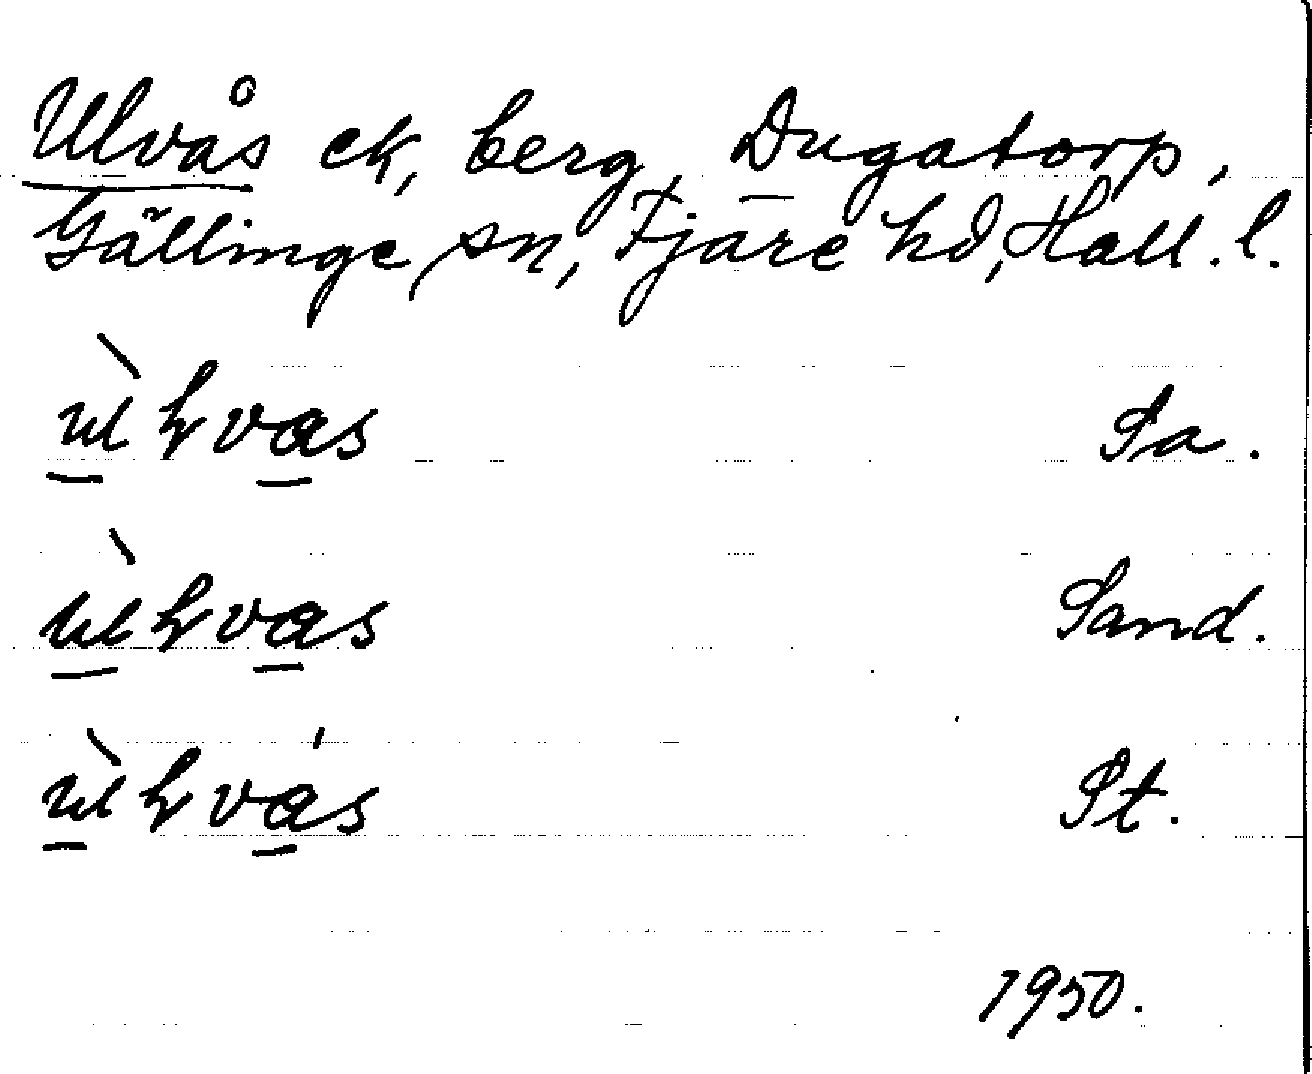 Ulvås ek, berg Dugatorp,
Gällinge sn, Fjäre hd, Hall. l.
Sa.
Sand.
St.
1950.